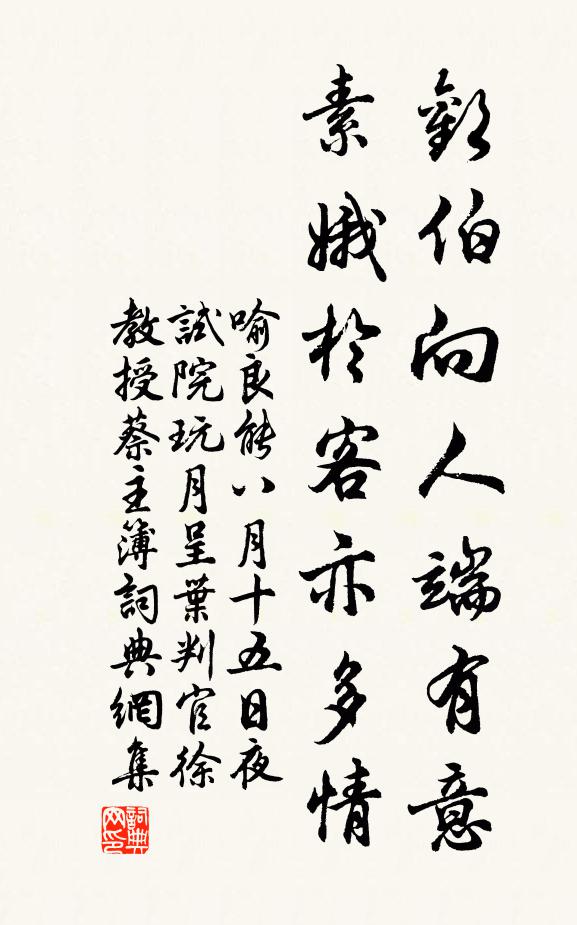 歡伯向人端有意
素娥於客亦多情
喻良能八月十五日夜
試院玩月呈葉判官徐
教授蔡主簿詞典網集
詞典
网印